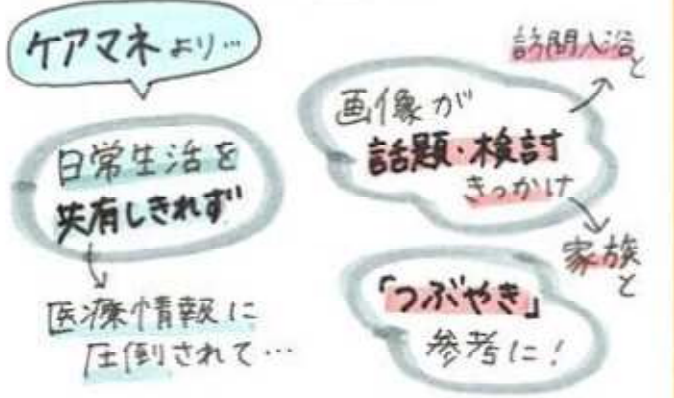 ケアマネより…
日常生活を
共有しきれず
医療情報に
圧倒されて…
画像が
話題・検討
きっかけ
訪問入浴
と
家族
と
「つぶやき」
参考に!